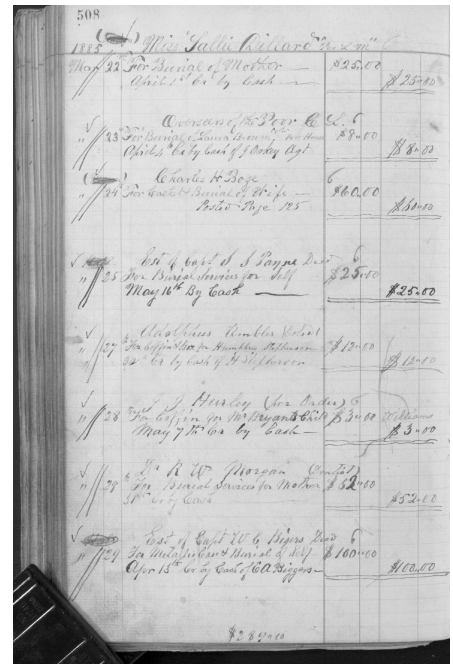 508
1885 Miss Sallie Dillard
Mar 22 For Burial of Mother — $25.00
April 1st Cr by Cash — $25.00
Overseers of the Poor C. L. 6
" 23 For Burial of $8.00
April 4 Cr by Cash of J Oakey Agt $8.00
Charles H Boze 6
" 24 For Casket & Burial of Wife — $60.00
Posted Page 125 $60.00
Est of Capt S S Payne Decd 6
" 25 For Burial Services for Self $25.00
May 16th By Cash — $25.00
Adolphus Col
" 27 For Coffin & Box for Humphry Stepherson $12.00
Cr by Cash of H Stepherson $12.00
J Hurley (for Order) 6
" 28 For Coffin for Mr Bryants Child $3.00 Williams
May 7th Cr by Cash — $3.00
Dr R W Morgan (Dentist)
" 29 For Burial Services for Mother $52.00
31st Cr by Cash $52.00
Est of Capt W C Bigers Decd 6
" 29 For Metallic Case & Burial of Self $100.00
Apr 15th Cr by Cash of C A Biggers — $100.00
$285.00